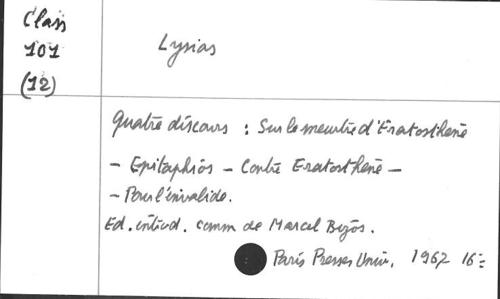 Class
101
(12)
Lysias
Quatre discours : Sur le meurtre d'Eratosthène
- Epitaphios - Contre Eratosthène -
- Pour l'invalide.
Ed. introd. comm de Marcel Bizos.
Paris Presses Univ. 1967 16=